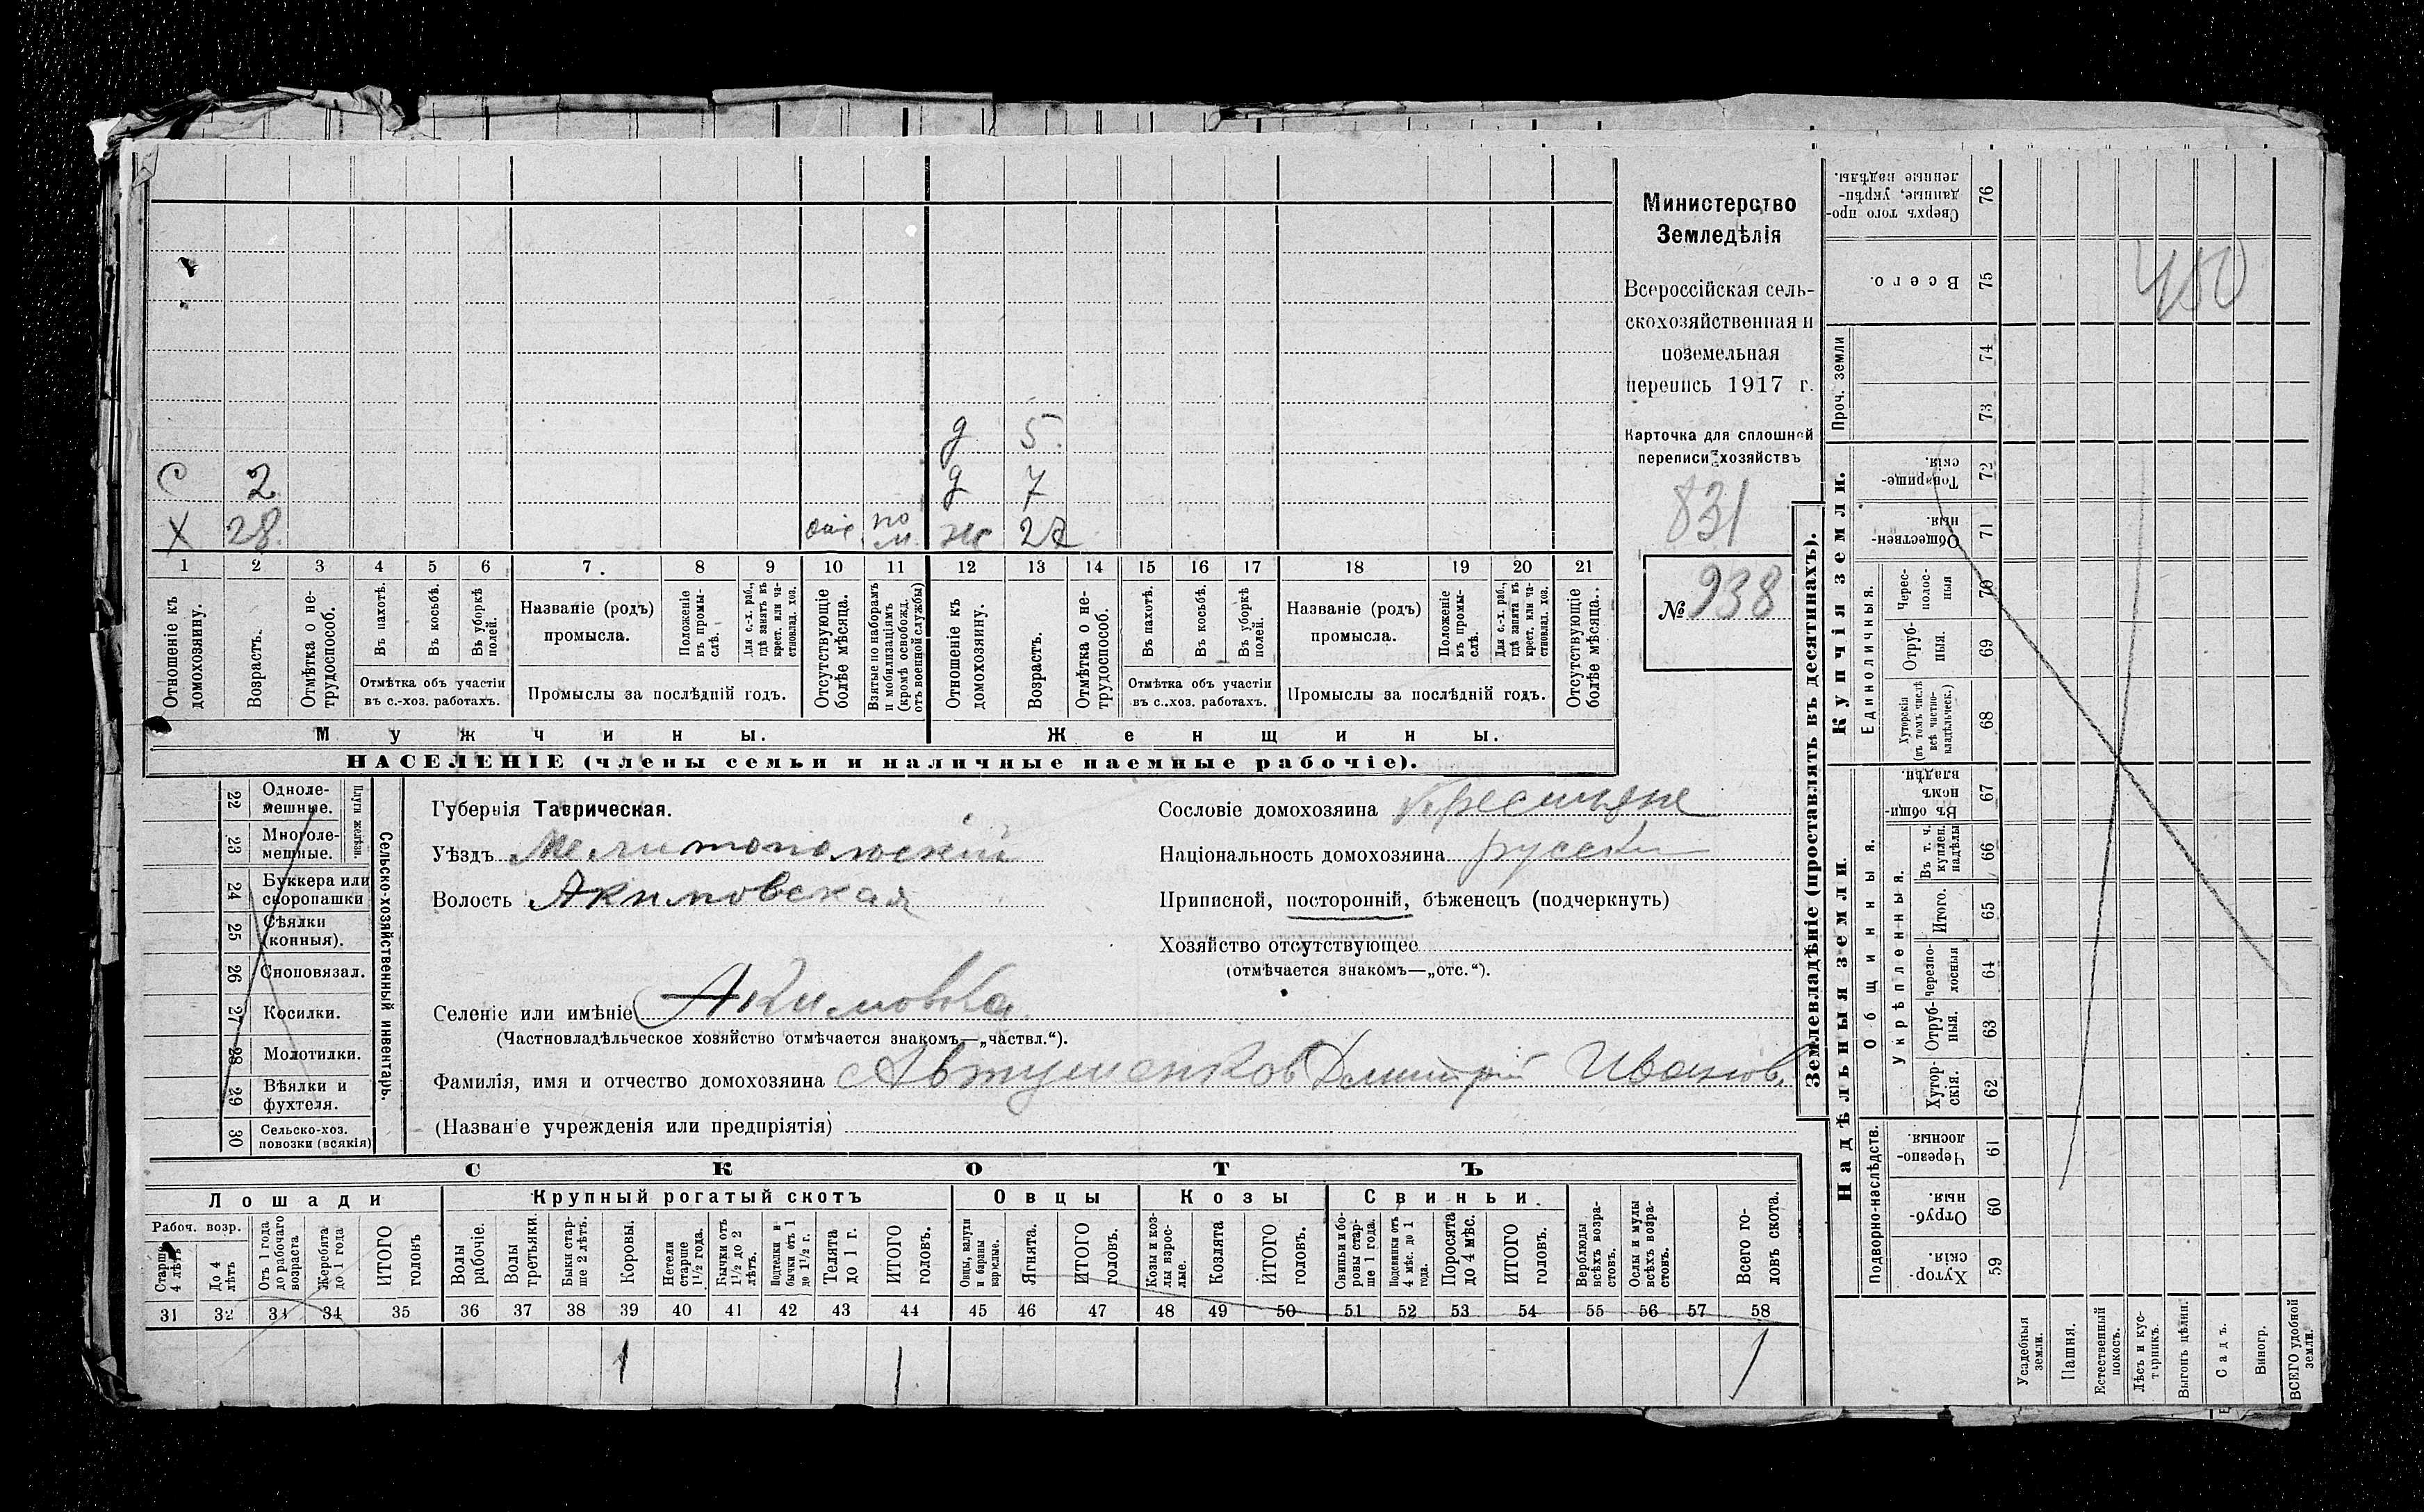 д 5.
С 2 д 7
Х 28. ж 27
1 2 3 4 5 6 7. 8 9 10 11 12 13 14 15 16 17 18 19 20 21
Отношеніе къ домохозяину.
Возрастъ.
Отмѣтка о не-трудоспособ.
Въ пахотѣ.
Въ косьбѣ.
Въ уборкѣ полей.
Отмѣтка объ участіи
въ с.-хоз. работахъ.
Названіе (родъ)
промысла.
Положеніе въ промы-слѣ.
Для с.-х. раб., гдѣ занятъ въ крест. или ча-стновлад. хоз.
Промыслы за послѣдній годъ.
Отсутствующіе болѣе мѣсяца.
Взятые по наборамъ и мобилизаціямъ (кромѣ освобожд. отъ военной службы)
Отношеніе къ домохозяину.
Возрастъ.
Отмѣтка о не-трудоспособ.
Въ пахотѣ.
Въ косьбѣ.
Въ уборкѣ полей.
Отмѣтка объ участіи
въ с.-хоз. работахъ.
Названіе (родъ)
промысла.
Положеніе въ промы-слѣ.
Для с.-х. раб., гдѣ занята въ крест. или ча-стновлад. хоз.
Промыслы за послѣдній годъ.
Отсутствующіе болѣе мѣсяца.
Мужчины.
Женщины.
НАСЕЛЕНІЕ (члены семьи и наличные наемные рабочіе).
Министерство
Земледѣлія
Всероссійская сель-
скохозяйственная и
поземельная
перепись 1917 г.
Карточка для сплошной
переписи хозяйствъ
831
№ 938
22 Одноле-
мешные.
23 Многоле-
мешные.
Плуги желѣзн.
24 Буккера или
скоропашки
25 Сѣялки
(конныя).
26 Сноповязал.
27 Косилки.
28 Молотилки.
29 Вѣялки и
фухтеля.
30 Сельско-хоз.
повозки (всякія)
Сельско-хозяйственный инвентарь.
Губернія Таврическая.
Уѣздъ Мелитопольскій
Волость Акимовская
Селеніе или имѣніе Акимовка
(Частновладѣльческое хозяйство отмѣчается знакомъ—„частвл.“).
Фамилія, имя и отчество домохозяина Автушенков Дмитрій Иванов.
(Названіе учрежденія или предпріятія)
Сословіе домохозяина Крестьяне
Національность домохозяина русскій
Приписной, посторонній, бѣженецъ (подчеркнуть)
Хозяйство отсутствующее
(отмѣчается знакомъ—„отс.“).
СКОТЪ
Лошади
Крупный рогатый скотъ
Овцы
Козы
Свиньи.
Рабоч. возр.
Старше 4 лѣтъ
До 4 лѣтъ
Отъ 1 года до рабочаго возраста
Жеребята до 1 года
ИТОГО головъ
Волы рабочіе.
Волы третьяки.
Быки стар-ше 2 лѣтъ.
Коровы.
Нетели старше 1½ года.
Бычки отъ 1½ до 2 лѣтъ.
Подтелки и бычки отъ 1 до 1½ г.
Телята до 1 г.
ИТОГО головъ.
Овцы, валухи и бараны взрослые.
Ягнята.
ИТОГО головъ.
Козы и коз-лы взрос-лые.
Козлята
ИТОГО головъ.
Свиньи и бо-ровы стар-ше 1 года.
Подсвинки отъ 4 мѣс. до 1 года.
Поросята до 4 мѣс.
ИТОГО головъ.
Верблюды всѣхъ возра-стовъ.
Ослы и мулы всѣхъ возра-стовъ.
Всего го-ловъ скота.
31 32 33 34 35 36 37 38 39 40 41 42 43 44 45 46 47 48 49 50 51 52 53 54 55 56 57 58
1 1 1
Землевладѣніе (проставлять въ десятинахъ).
Сверхъ того про-данные, укрѣп-ленные надѣлы. 76
Всего. 75
450
Проч. земли 74
73
Купчія земли.
Товарище-скія. 72
Обществен-ныя. 71
Единоличныя.
Черес-полос-ныя 70
Отруб-ныя. 69
Хуторскія (въ томъ числѣ всѣ частно-владѣльческ.) 68
Надѣльныя земли
Общинныя.
Въ общи-номъ владѣн. 67
Укрѣпленныя.
Въ т. ч. куплен. надѣлы 66
Итого. 65
Черезпо-лосныя 64
Отруб-ныя. 63
Хутор-скія. 62
Подворно-наслѣдств.
Черезпо-лосныя. 61
Отруб-ныя. 60
Хутор-скія. 59
Усадебныя земли.
Пашня.
Естественный покосъ.
Лѣсъ и кус-тарникъ.
Выгонъ цѣлин.
Садъ.
Виногр.
ВСЕГО удобной земли.